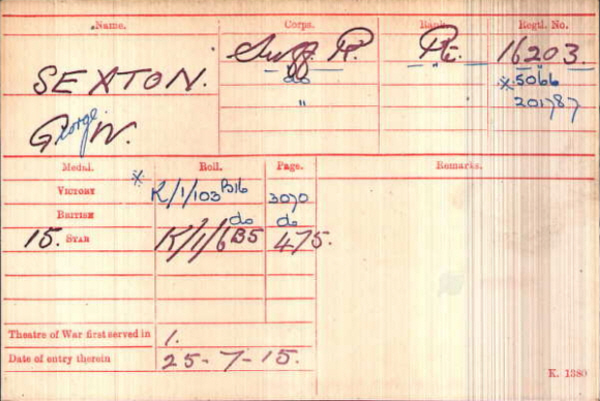 Name. Corps. Rank. Regtl. No.
SEXTON. Suff. R. Pte. 16203.
do " * 5066
" " 201787
George W.
Medal. Roll. Page. Remarks.
VICTORY * K/1/103 B16 3070
BRITISH do do
15. STAR K/1/6 B5 475.
Theatre of War first served in 1.
Date of entry therein 25-7-15.
K. 1380